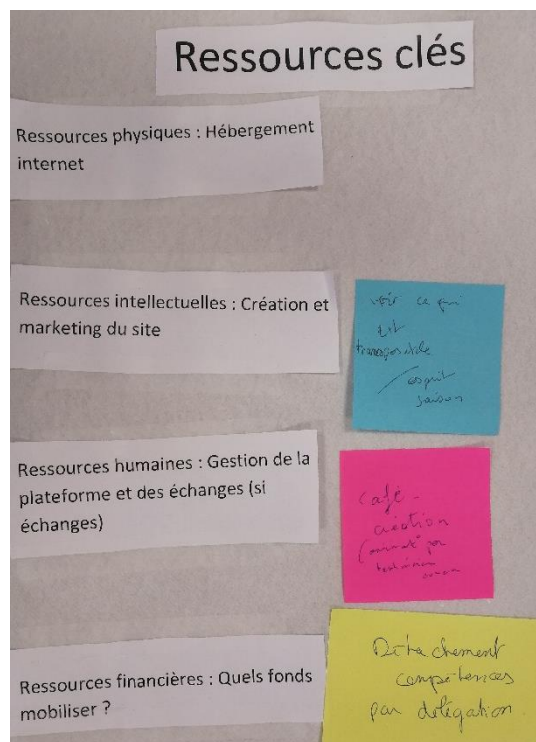 Ressources clés
Ressources physiques : Hébergement
internet
Ressources intellectuelles : Création et
marketing du site
voir ce qui
est
transposable
/ esprit
saison
Ressources humaines : Gestion de la
plateforme et des échanges (si
échanges)
café -
création
par
Ressources financières : Quels fonds
mobiliser ?
Détachement
compétences
par délégation